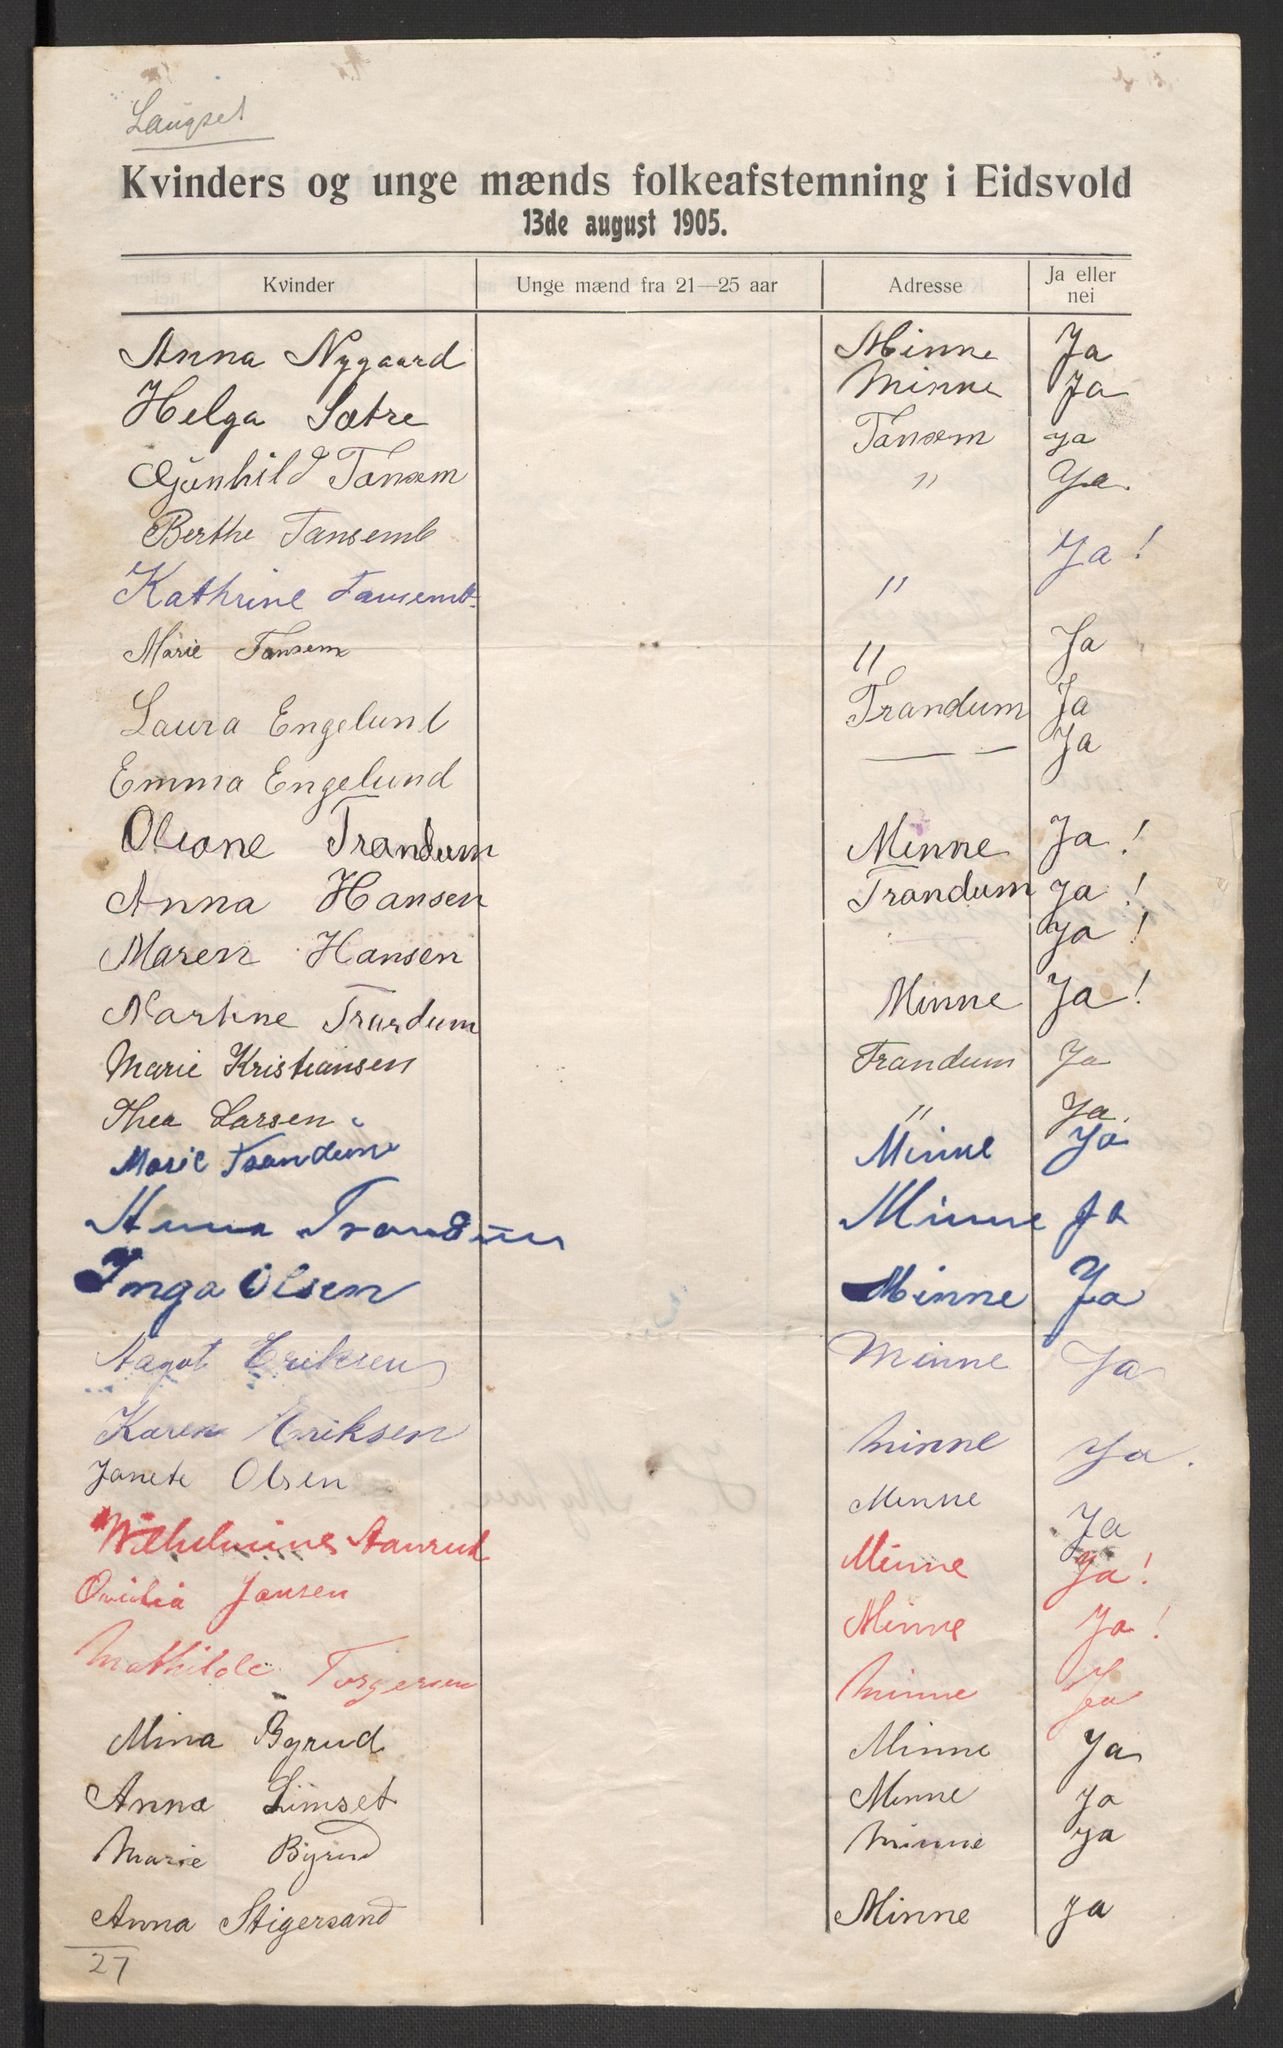 Laugset
Kvinders og unge mænds folkeafstemning i Eidsvold
13de august 1905.
Kvinder Unge mænd fra 21—25 aar Adresse Ja eller nei
Anna Nygaard Minne Ja
Helga Sætre Minne Ja
Gunhild Tansem Tansem Ja
Berthe Tansemb " Ja.
Kathrine Tansemb " Ja!
Marie Tansem " Ja
Laura Engelund Trandum Ja
Emma Engelund — — Ja
Oleane Trandum Minne Ja!
Anna Hansen Trandum Ja!
Maren Hansen — Ja!
Martine Trandum Minne Ja!
Marie Kristiansen Trandum Ja
Thea Larsen " Ja.
Marie Trandum Minne Ja
Anna Trandum Minne Ja
Inga Olsen Minne Ja
Aagot Eriksen Minne Ja
Karen Eriksen Minne Ja.
Janete Olsen Minne Ja
Wilhelmine Aanrud Minne Ja!
Ovidia Jansen Minne Ja!
Mathilde Torgersen Minne Ja
Mina Byrud Minne Ja
Anna Limset Minne Ja
Marie Byrud Minne Ja
Anna Stigersand Minne Ja
27